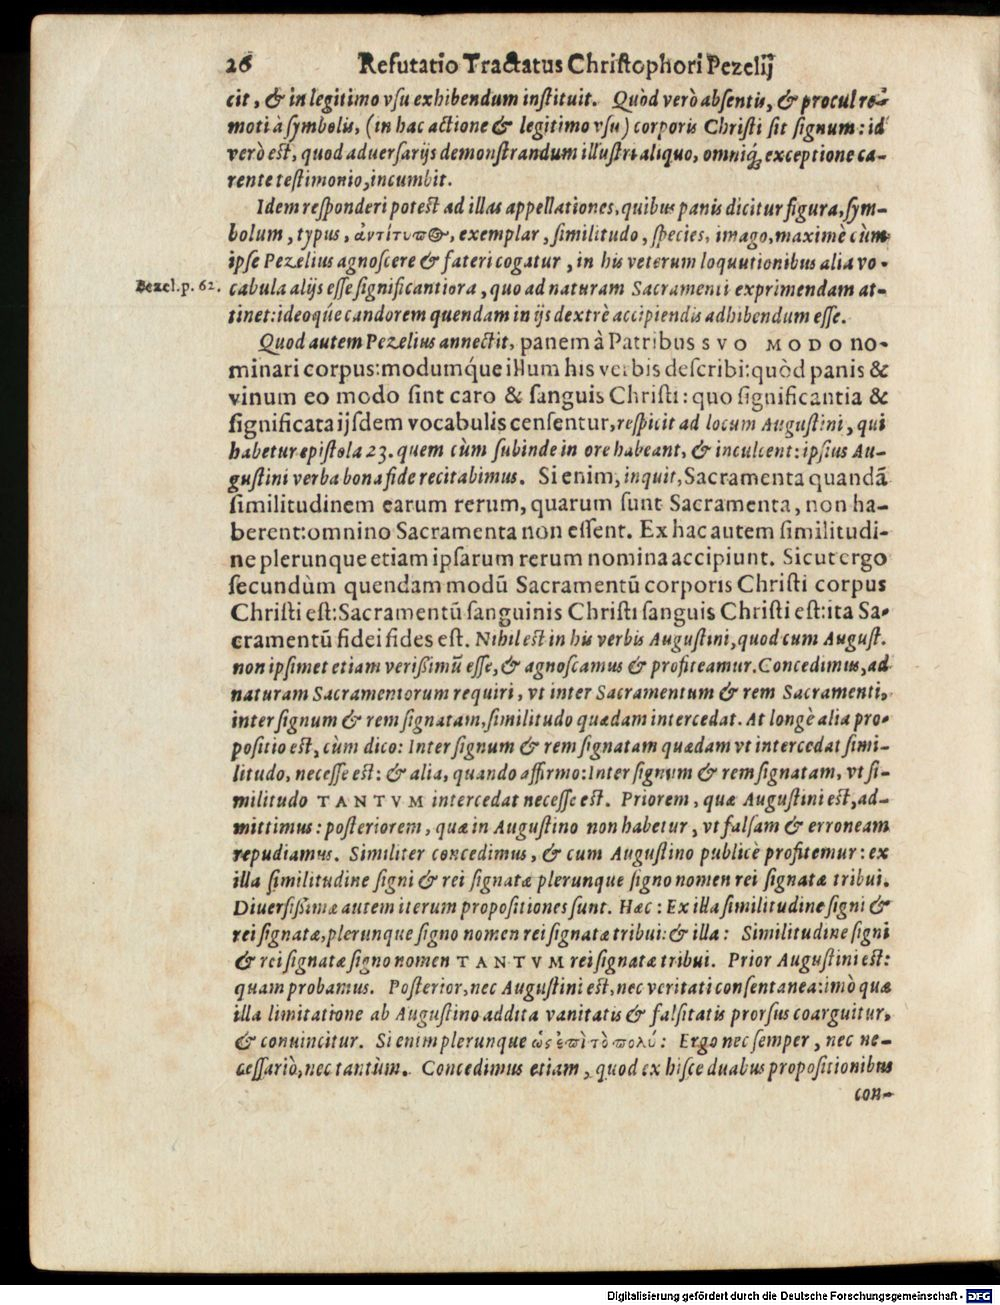 26 Refutatio Tractatus Christophori Pezelij
cit, & in legitimo vſu exhibendum inſtituit. Quòd verò abſentis, & procul re-
moti à ſymbolis, (in hac actione & legitimo vſu) corporis Chriſti ſit ſignum: id
verò eſt, quod aduerſarijs demonſtrandum illuſtri aliquo, omniq́; exceptione ca-
rente teſtimonio, incumbit.
Idem reſponderi poteſt ad illas appellationes, quibus panis dicitur figura, ſym-
bolum, typus, ἀντίτυπος, exemplar, ſimilitudo, ſpecies, imago, maximè cùm
ipſe Pezelius agnoſcere & fateri cogatur, in his veterum loquutionibus alia vo-
Pezel. p. 62. cabula alijs eſſe ſignificantiora, quo ad naturam Sacramenti exprimendam at-
tinet: ideoq́ue candorem quendam in ijs dextrè accipiendis adhibendum eſſe.
Quod autem Pezelius annectit, panem à Patribus SVO MODO no-
minari corpus: modumq́ue illum his verbis deſcribi: quòd panis &
vinum eo modo ſint caro & ſanguis Chriſti: quo ſignificantia &
ſignificata ijſdem vocabulis cenſentur, reſpicit ad locum Auguſtini, qui
habetur epiſtola 23. quem cùm ſubinde in ore habeant, & inculcent: ipſius Au-
guſtini verba bona fide recitabimus. Si enim, inquit, Sacramenta quandã
ſimilitudinem earum rerum, quarum ſunt Sacramenta, non ha-
berent: omnino Sacramenta non eſſent. Ex hac autem ſimilitudi-
ne plerunque etiam ipſarum rerum nomina accipiunt. Sicut ergo
ſecundùm quendam modũ Sacramentũ corporis Chriſti corpus
Chriſti eſt: Sacramentũ ſanguinis Chriſti ſanguis Chriſti eſt: ita Sa-
cramentũ fidei fides eſt. Nihil eſt in his verbis Auguſtini, quod cum Auguſt.
non ipſimet etiam veriſſimũ eſſe, & agnoſcamus & profiteamur. Concedimus, ad
naturam Sacramentorum requiri, vt inter Sacramentum & rem Sacramenti,
inter ſignum & rem ſignatam, ſimilitudo quædam intercedat. At longè alia pro-
poſitio eſt, cùm dico: Inter ſignum & rem ſignatam quædam vt intercedat ſimi-
litudo, neceſſe eſt: & alia, quando affirmo: Inter ſignum & rem ſignatam, vt ſi-
militudo TANTVM intercedat neceſſe eſt. Priorem, quæ Auguſtini eſt, ad-
mittimus: poſteriorem, quæ in Auguſtino non habetur, vt falſam & erroneam
repudiamus. Similiter concedimus, & cum Auguſtino publicè profitemur: ex
illa ſimilitudine ſigni & rei ſignatæ plerunque ſigno nomen rei ſignatæ tribui.
Diuerſiſſimæ autem iterum propoſitiones ſunt. Hæc: Ex illa ſimilitudine ſigni &
rei ſignatæ, plerunque ſigno nomen rei ſignatæ tribui: & illa: Similitudine ſigni
& rei ſignatæ ſigno nomen TANTVM rei ſignatæ tribui. Prior Auguſtini eſt:
quam probamus. Poſterior, nec Auguſtini eſt, nec veritati conſentanea: imò quæ
illa limitatione ab Auguſtino addita vanitatis & falſitatis prorſus coarguitur,
& conuincitur. Si enim plerunque ὡς ἐπὶ τὸ πολύ: Ergo nec ſemper, nec ne-
ceſſariò, nec tantùm. Concedimus etiam, quod ex hiſce duabus propoſitionibus
con-
Digitalisierung gefördert durch die Deutsche Forschungsgemeinschaft - DFG